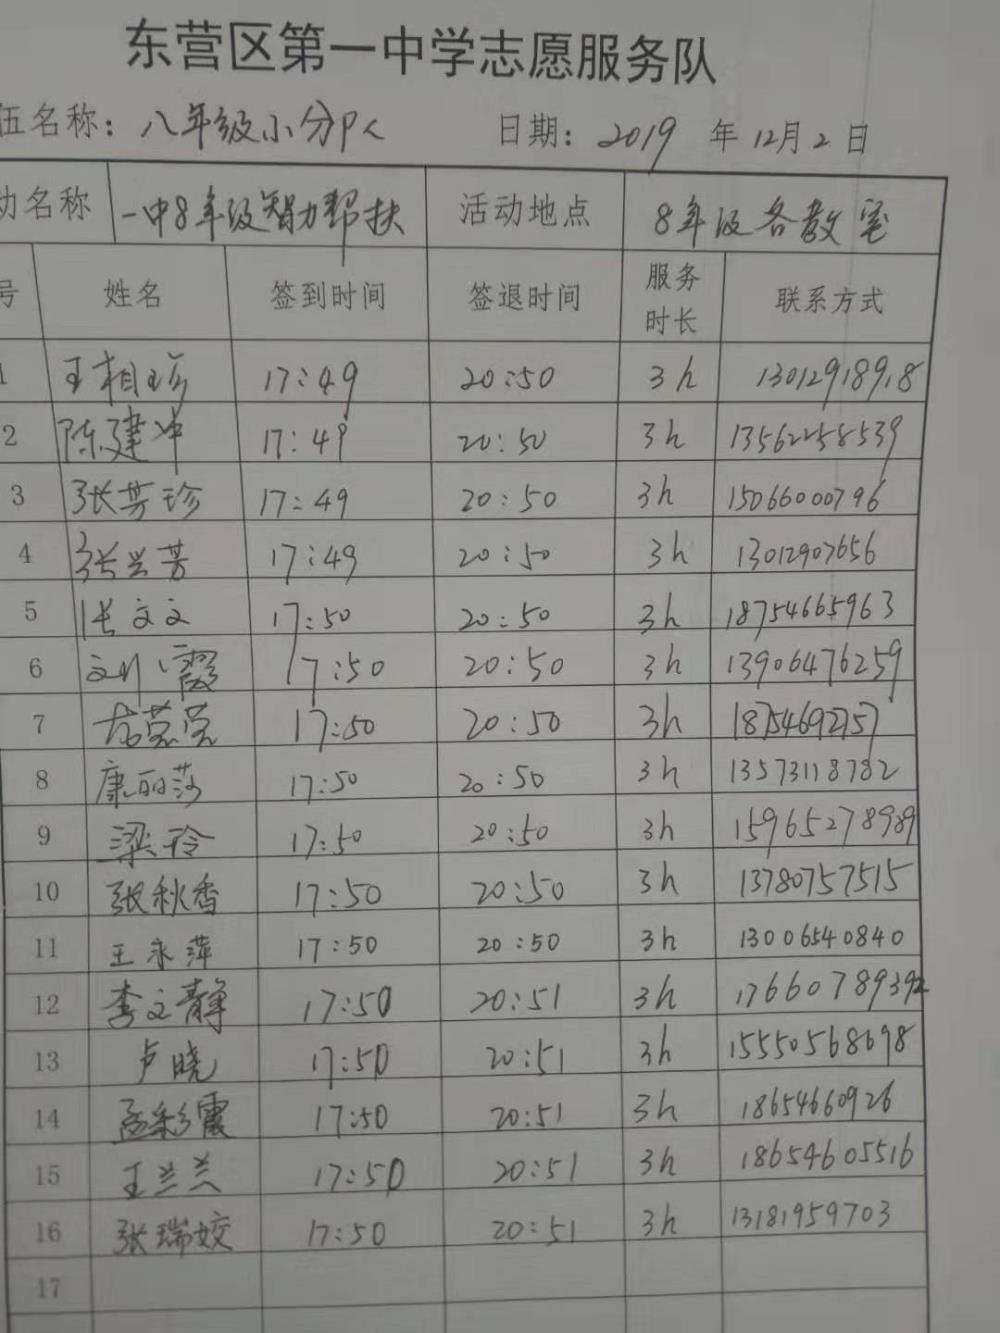 东营区第一中学志愿服务队
伍名称：八年级小分队 日期：2019 年 12月 2 日
动名称 一中8年级智力帮扶 活动地点 8年级各教室
号 姓名 签到时间 签退时间 服务时长 联系方式
1 王相珍 17:49 20:50 3h 13012918918
2 陈建冲 17:49 20:50 3h 13562258539
3 张芳珍 17:49 20:50 3h 15066000796
4 张兰芳 17:49 20:50 3h 13012907656
5 张文文 17:50 20:50 3h 18754665963
6 刘霞 17:50 20:50 3h 13906476259
7 17:50 20:50 3h 18754692757
8 康丽莎 17:50 20:50 3h 13573118782
9 梁玲 17:50 20:50 3h 15965278989
10 张秋香 17:50 20:50 3h 13780757515
11 王永萍 17:50 20:50 3h 13006540840
12 李文静 17:50 20:51 3h 17660789392
13 卢晓 17:50 20:51 3h 15550568698
14 孟彩霞 17:50 20:51 3h 18654660926
15 王兰兰 17:50 20:51 3h 18654605516
16 张瑞姣 17:50 20:51 3h 13181959703
17